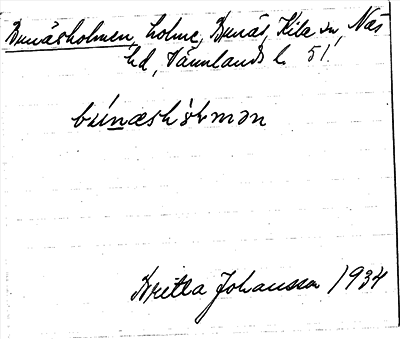 Bunäsholmen, holme, Bunäs, Kila sn, Näs
hd, Värmlands l. 51.
bu̇́næshòlmən
Britta Johansson 1934